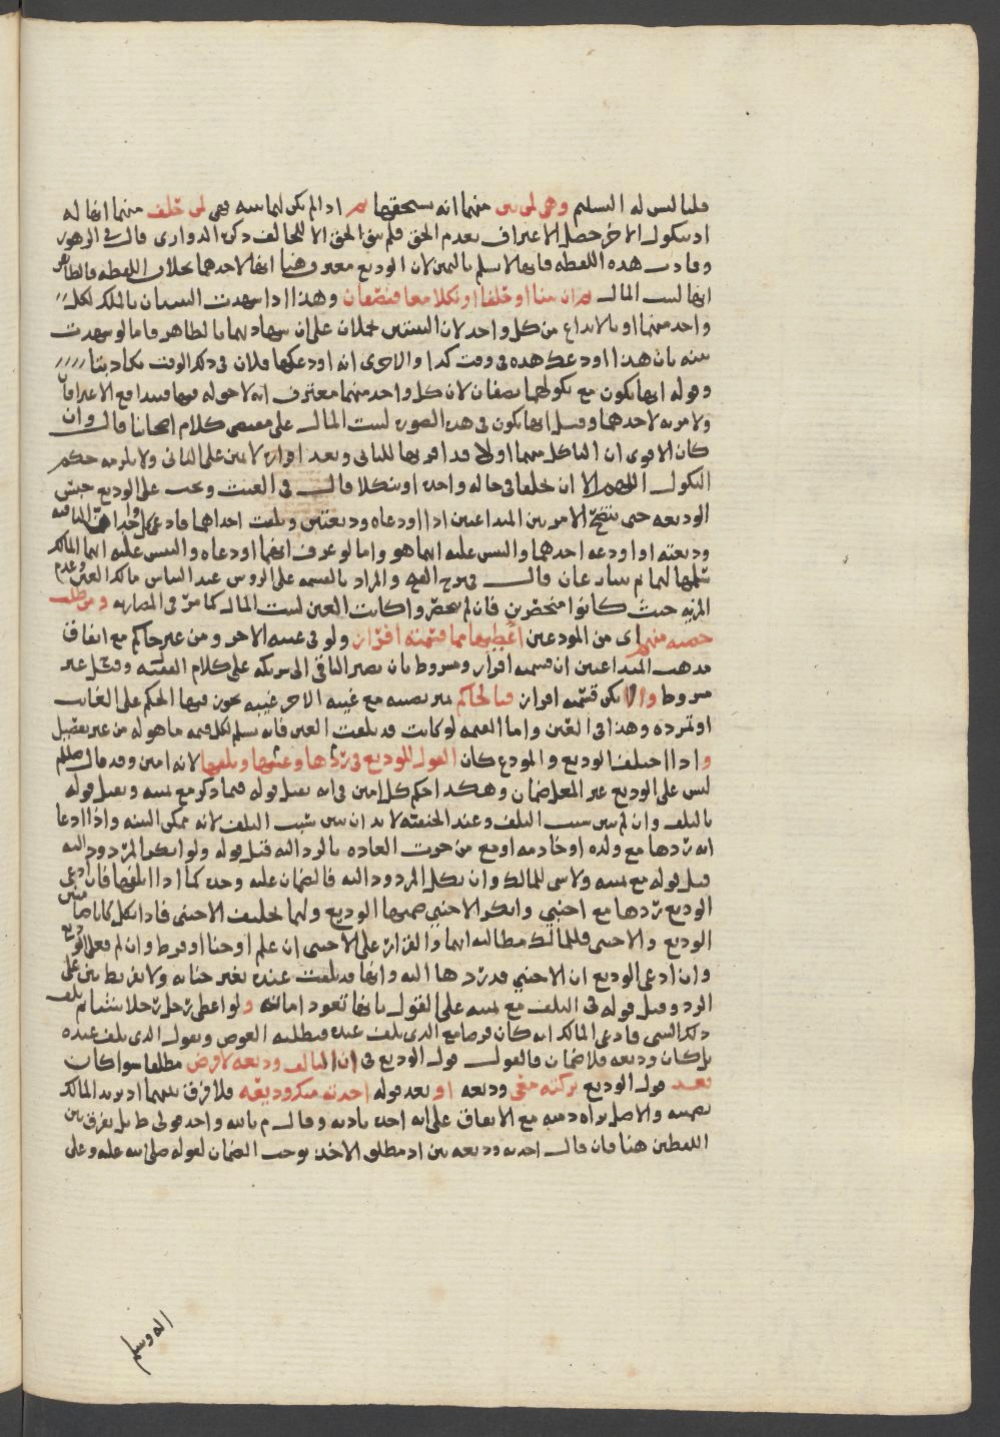 قلنا ليس له التسليم وهي لمن بين منهما انه يستحقها ثم اذا لم يكن لهما بينه فهي لمن حلف منهما انها له
او نكول الاخر حصل الاعتراف بعدم الحق فلم يبق الحق الا للحالف ذكره الدواري قال في الزهور
وفارقت هذه اللقطه فانها لا تسلم باليمين لان الوديع معترف هنا انها لاحدهما بخلاف اللقطه فالظاهر
انها لبيت المال ثم ان بينا او حلفا او نكلا معا فنصفان وهذا اذا شهدت البينتان بالملك لكل
واحد منهما او بالايداع من كل واحد لان البينتين تحملان على ان شهادتهما بالظاهر فاما لو شهدت
بينه بان هذا اودعك هذه في وقت كذا والاخرى انه اودعكها فلان في ذلك الوقت تكاذبتا
وقوله انها تكون مع نكولهما نصفان لان كل واحد منهما معترف انه لا حق له فيها فتدافع الاعترافان
ولا مزيه لاحدهما وقيل انها تكون في هذه الصوره لبيت المال على مقتضى كلام اصحابنا قال وان
كان الاقوى ان الناكل منهما اولا قد اقر بها للثاني وبعد اقراره لا يمين على الثاني ولا يلزمه حكم
النكول اللهم الا ان حلفا في حاله واحده او نكلا قال في الغيث ويجب على الوديع حبس
الوديعه حتى يتضح الامر بين المتداعيين اذا اودعاه وديعتين وتلفت احداهما فادعى كل واحد ان الباقيه
وديعته او اودعه احدهما والتبس عليه ايهما هو واما لو عرف انهما اودعاه والتبس عليه ايهما المالك
سلمها لهما ثم يتنازعان قال في شرح الفتح والمراد بالقسمه على الروس عند التباس مالك العين وعدم
المزيه حيث كانوا منحصرين فان لم ينحصروا كانت العين لبيت المال كما مر في المضاربه ومن طلب
حصته منهم اي من المودعين اعطيها مما قسمته افراز ولو في غيبه الاخر ومن غير حاكم مع اتفاق
مذهب المتداعيين ان قسمته افراز ومشروط بان يصير الباقي الى شريكه على كلام الفقيه وقيل غير
مشروط والا تكن قسمته افراز فبالحاكم يميز نصيبه مع غيبه الاخر غيبه يجوز فيها الحكم على الغائب
او تمرده وهذا في العين واما القيمه لو كانت قد تلفت العين فانه يسلم لكل قيمه ما هو له من غير تفصيل
واذا اختلف الوديع والمودع كان القول للوديع في ردها وعينها وتلفها لانه امين وقد قال صللم
ليس على الوديع غير المغل ضمان وهكذا حكم كل امين في انه يقبل قوله فيما ذكر مع يمينه ويقبل قوله
بالتلف وان لم يبين سبب التلف وعند الحنفيه لا بد ان يبين سبب التلف لانه ممكن البينه واذا ادعا
انه ردها مع ولده او خادمه او مع من جرت العاده بالرد اليه قبل قوله ولو انكر المردود اليه
قبل قوله مع يمينه ولا شي للمالك وان نكل المردود اليه فالضمان عليه وحده كما اذا اتلفها فان ادعى
الوديع ردها مع اجنبي وانكر الاجنبي ضمنها الوديع ولهما تحليف الاجنبي فاذا نكل كانا ضامنين
الوديع والاجنبي فللمالك مطالبه ايهما والقرار على الاجنبي ان علم او جنا او فرط وان لم فعلى الوديع
وان ادعى الوديع ان الاجنبي قد ردها اليه وانها قد تلفت عنده بغير جنايه ولا تفريط بين على
الرد وقبل قوله في التلف مع يمينه على القول بانها تعود امانته ولو اعطى رجل رجلا شيئا ثم تلف
ذلك الشي فادعى المالك انه كان قرضا مع الذي تلف عنده فيطلبه العوض ويقول الذي تلف عنده
بل كان وديعه فلا ضمان فالقول قول الوديع في ان التالف وديعه لا قرض مطلقا سوا كان
بعد قول الوديع تركته معي وديعه او بعد قوله اخذته منك وديعه فلا فرق بينهما اذ يريد المالك
تضمينه والاصل براه ذمته مع الاتفاق على انه اخذه باذنه وقال م بالله واحد قولي ط بل يفرق بين
اللفظين هنا فان قال اخذته وديعه بين اذ مطلق الاخذ يوجب الضمان لقوله صلى الله عليه وعلى
اله وسلم